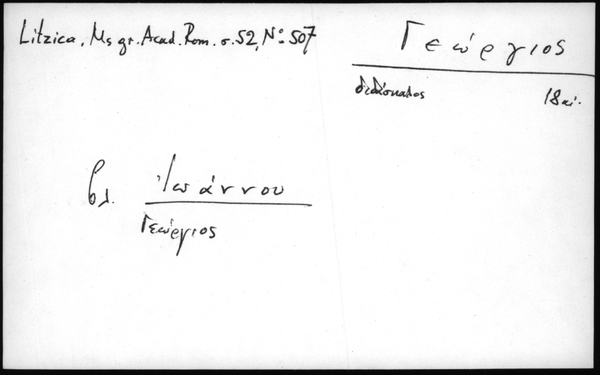 Litzica, Ms gr. Acad. Rom. σ. 52, Nº 507
Γεώργιος
διδάσκαλος 18 αἰ.
βλ. Ἰωάννου
Γεώργιος